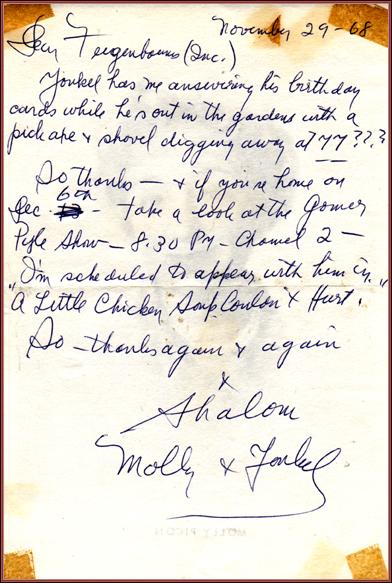 November 29-68
Dear Feigenbaums (Inc.)
Yonkel has me answering his birthday
cards while he's out in the gardens with a
pick axe & shovel digging away at 77???
So thanks — & if you're home on
Dec. 6th - take a look at the Gomer
Pyle Show — 8.30 PM - Channel 2 —
I'm scheduled to appear with him in
"A Little Chicken Soup Couldn't Hurt."
So — thanks again & again
&
Shalom
Molly & Yonkel
MOLLY PICON